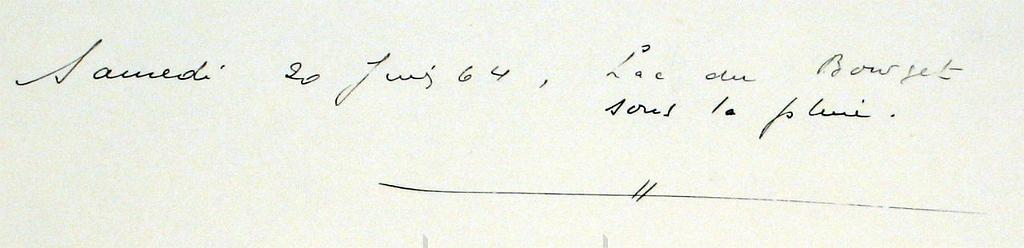 Samedi 20 Juin 64, Lac du Bourget
sous la pluie.